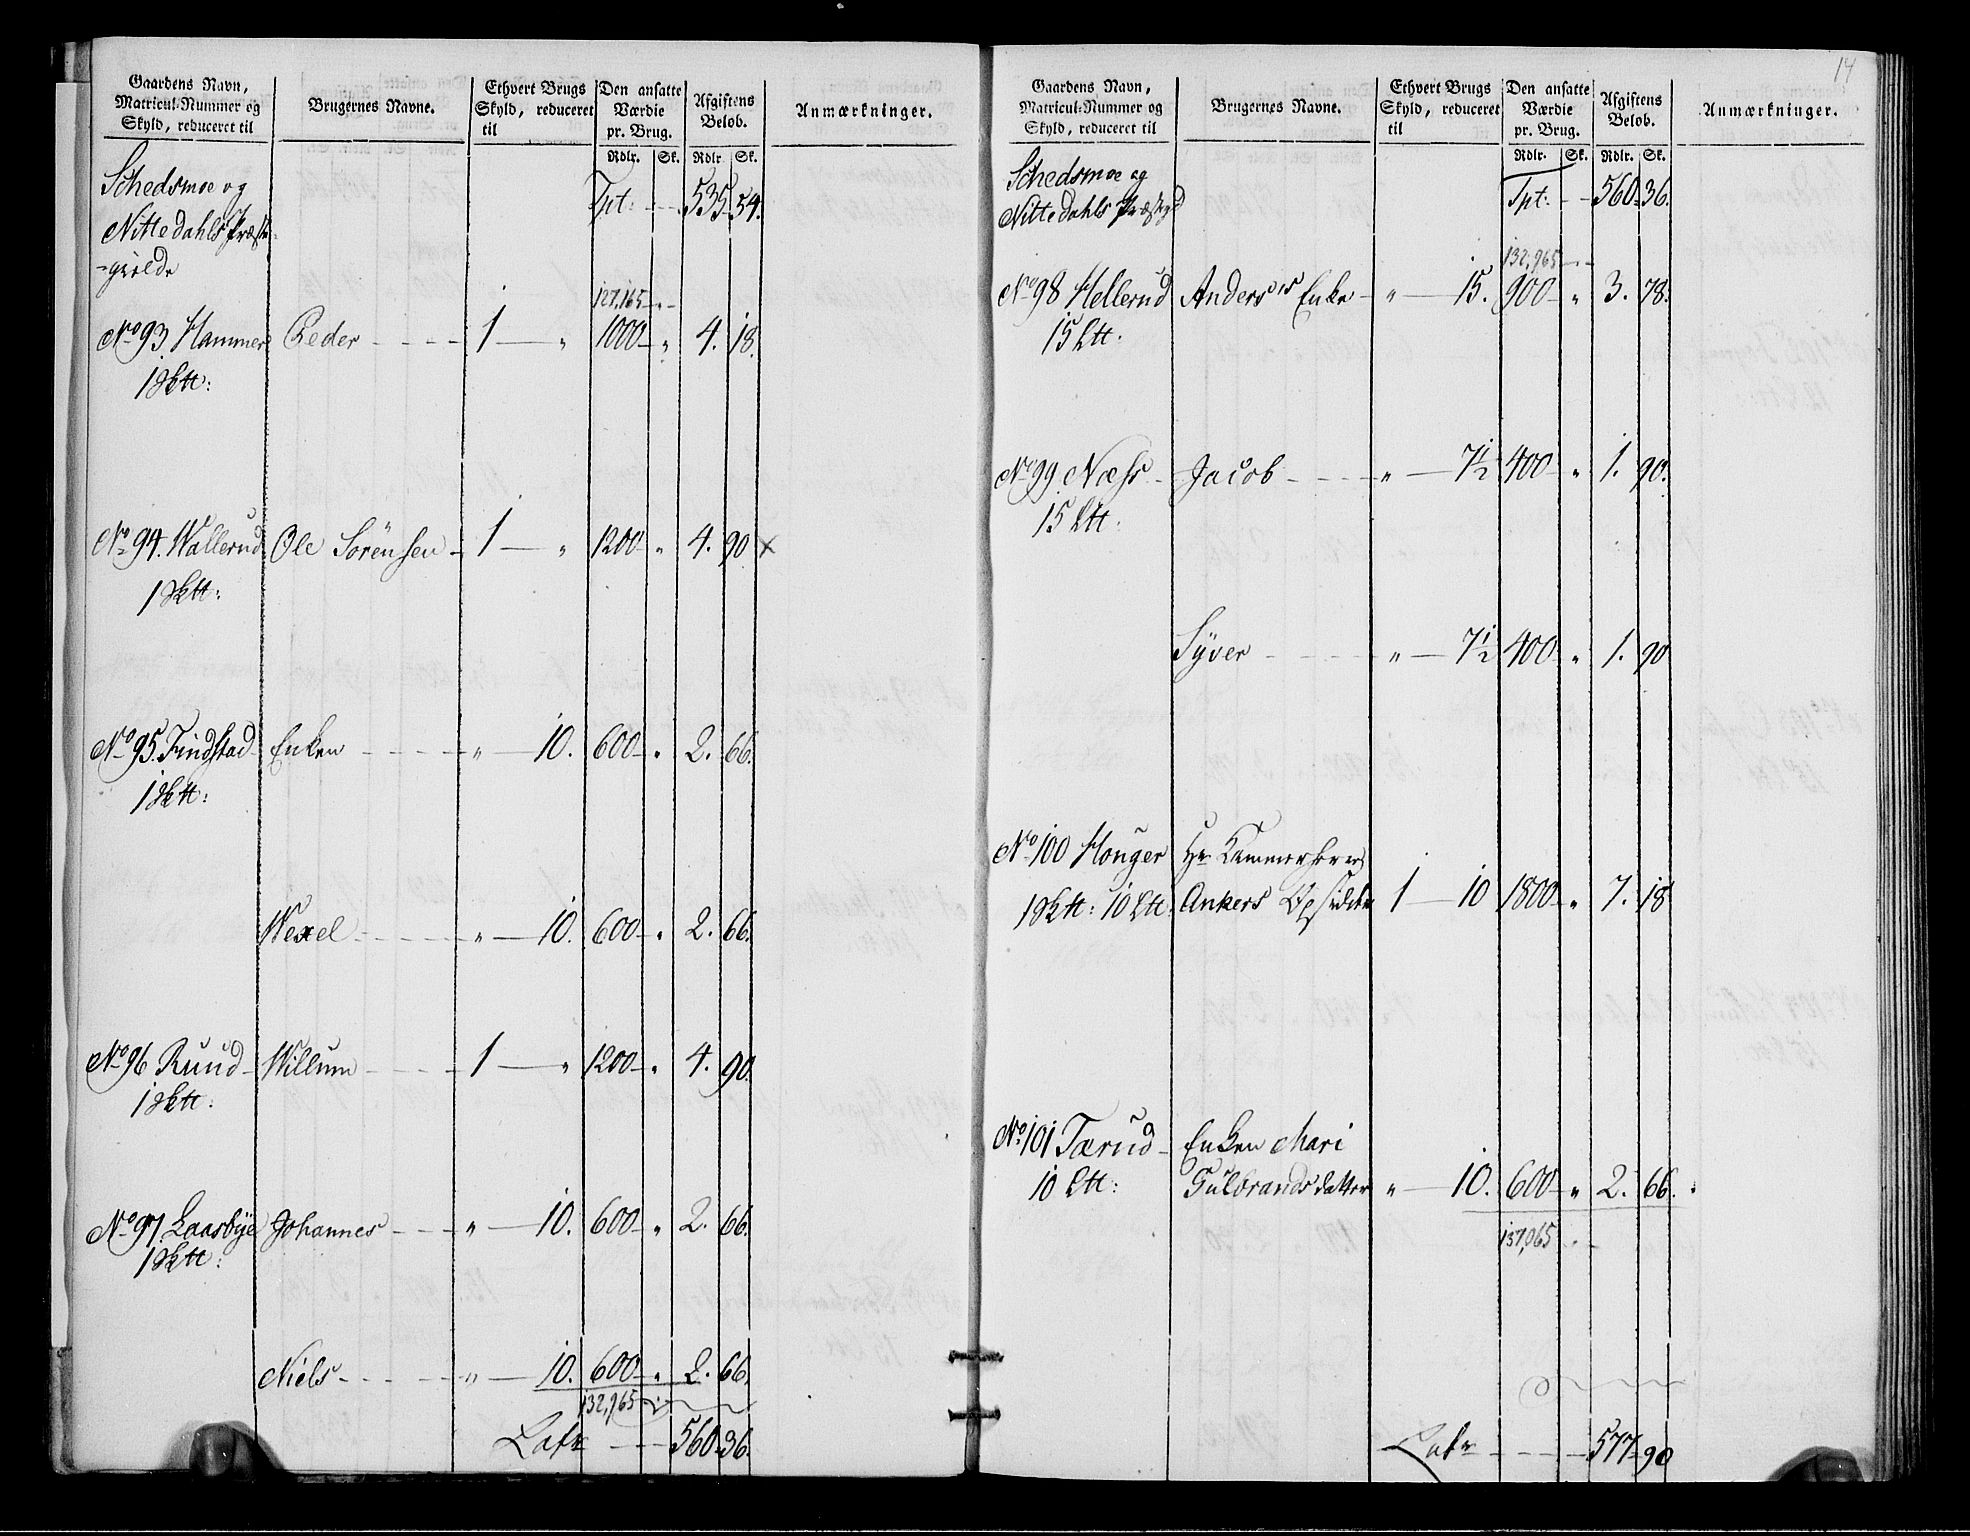 Gaardens Navn, Matricul-Nummer og Skyld, reduceret til | Brugernes Navne. | Ethvert Brugs Skyld, reduceret til | Den ansatte Værdie pr. Brug. Rdlr. Sk. | Afgiftens Beløb. Rdlr. Sk. | Anmærkninger.
Schedsmoe og Tpt: 535. 54.
Nittedahls Præste-
-gield
127,165
No 93. Hammer Peder 1 " 1000 " 4. 18.
1 Sktt:
No 94. Wallerud Ole Sørensen 1 " 1200 " 4. 90 x
1 Sktt:
No 95. Findstad Enken " 10. 600 " 2. 66.
1 Sktt:
Wexel " 10. 600 " 2. 66.
No 96 Ruud Willum 1 " 1200 " 4. 90.
1 Sktt:
No 97. Laasbye Johannes " 10. 600 " 2. 66.
1 Sktt:
Niels " 10. 600 " 2. 66.
132,965
Latr 560 36.
14
Gaardens Navn, Matricul-Nummer og Skyld, reduceret til | Brugernes Navne. | Ethvert Brugs Skyld, reduceret til | Den ansatte Værdie pr. Brug. Rdlr. Sk. | Afgiftens Beløb. Rdlr. Sk. | Anmærkninger.
Schedsmoe og Tpt: 560 36.
Nittedahls Præstegd
132,965
No 98 Hellerud Anders's Enke " 15. 900 " 3. 78.
15 Ltt.
No 99 Næss Jacob " 7½ 400 " 1. 90.
15 Ltt:
Syver " 7½ 400 " 1. 90
No 100 Houger Hr Kammerherre
1 Sktt: 10 Ltt. Ankers Opsidder 1 10 1800 " 7. 18
No 101 Tærud Enken Mari
10 Ltt: Gulbrandsdatter " 10. 600 " 2. 66.
137,065
Latr 577 90